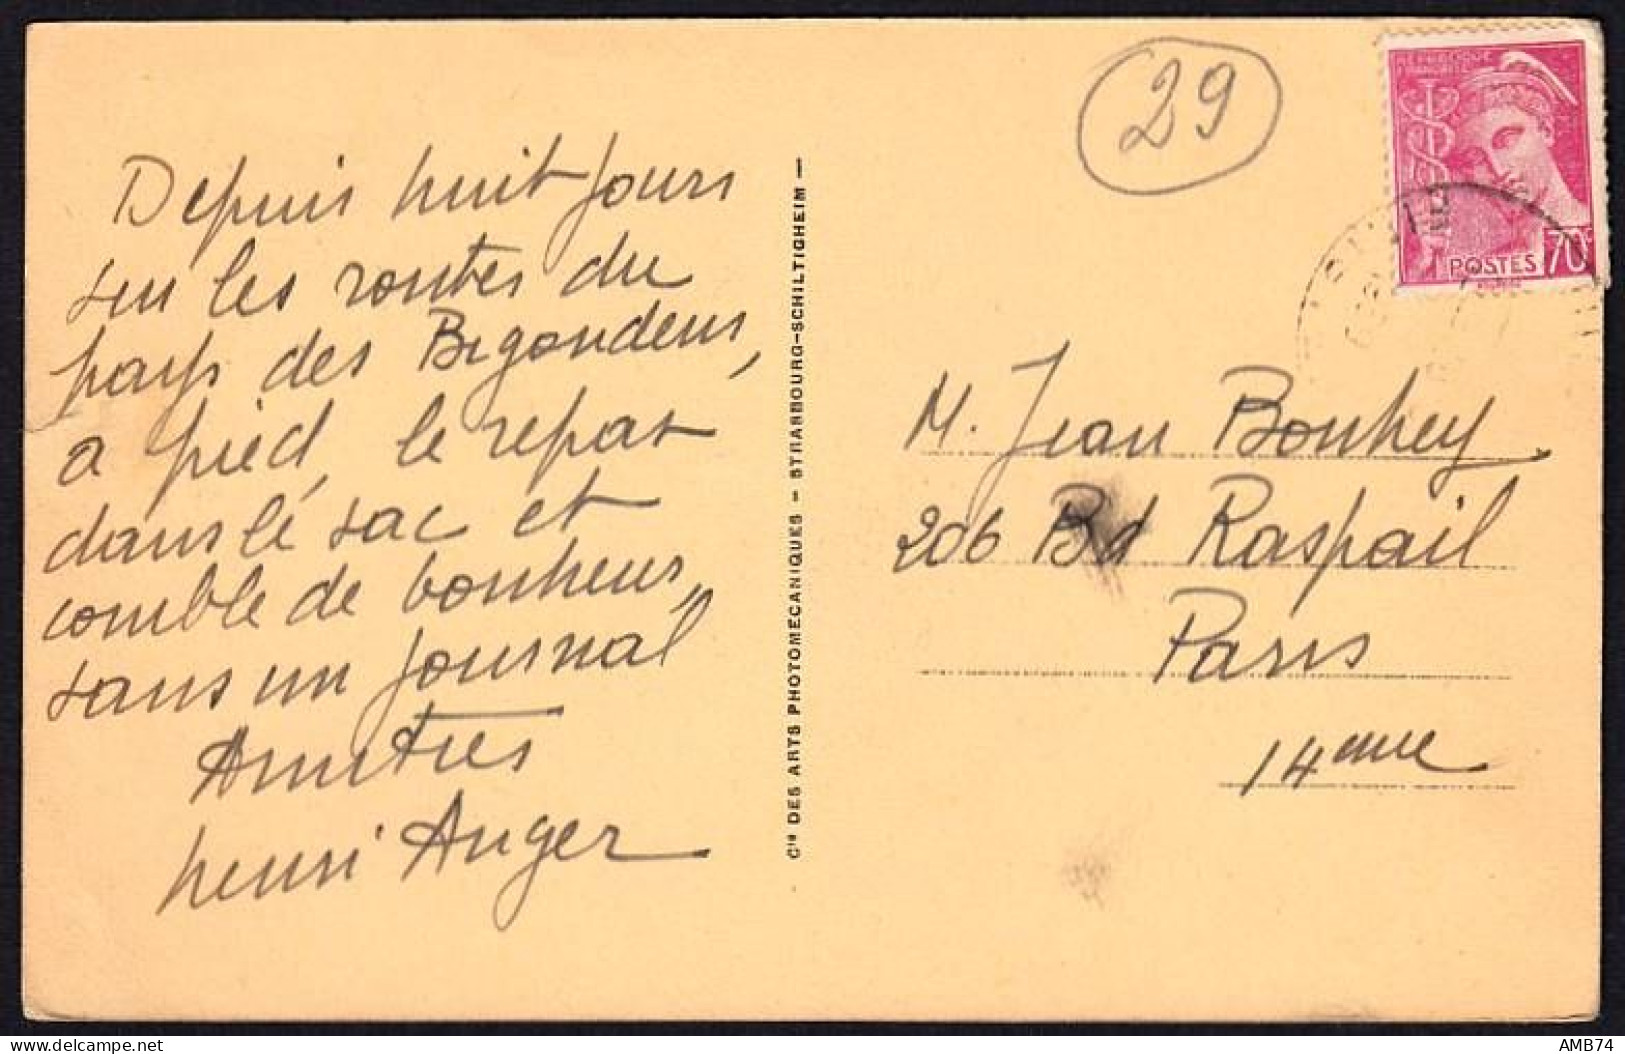 29
RÉPUBLIQUE
FRANÇAISE
POSTES 70c
Depuis huit jours
sur les routes du
pays des Bigoudens,
a pied, le repas
dans le sac et
comble de bonheur,
sans un journal
Amitiés
Henri Anger
Cie DES ARTS PHOTOMECANIQUES - STRASBOURG-SCHILTIGHEIM -
M. Jean Bouhey
206 Bd Raspail
Paris
14eme
delcampe.net
AMB74